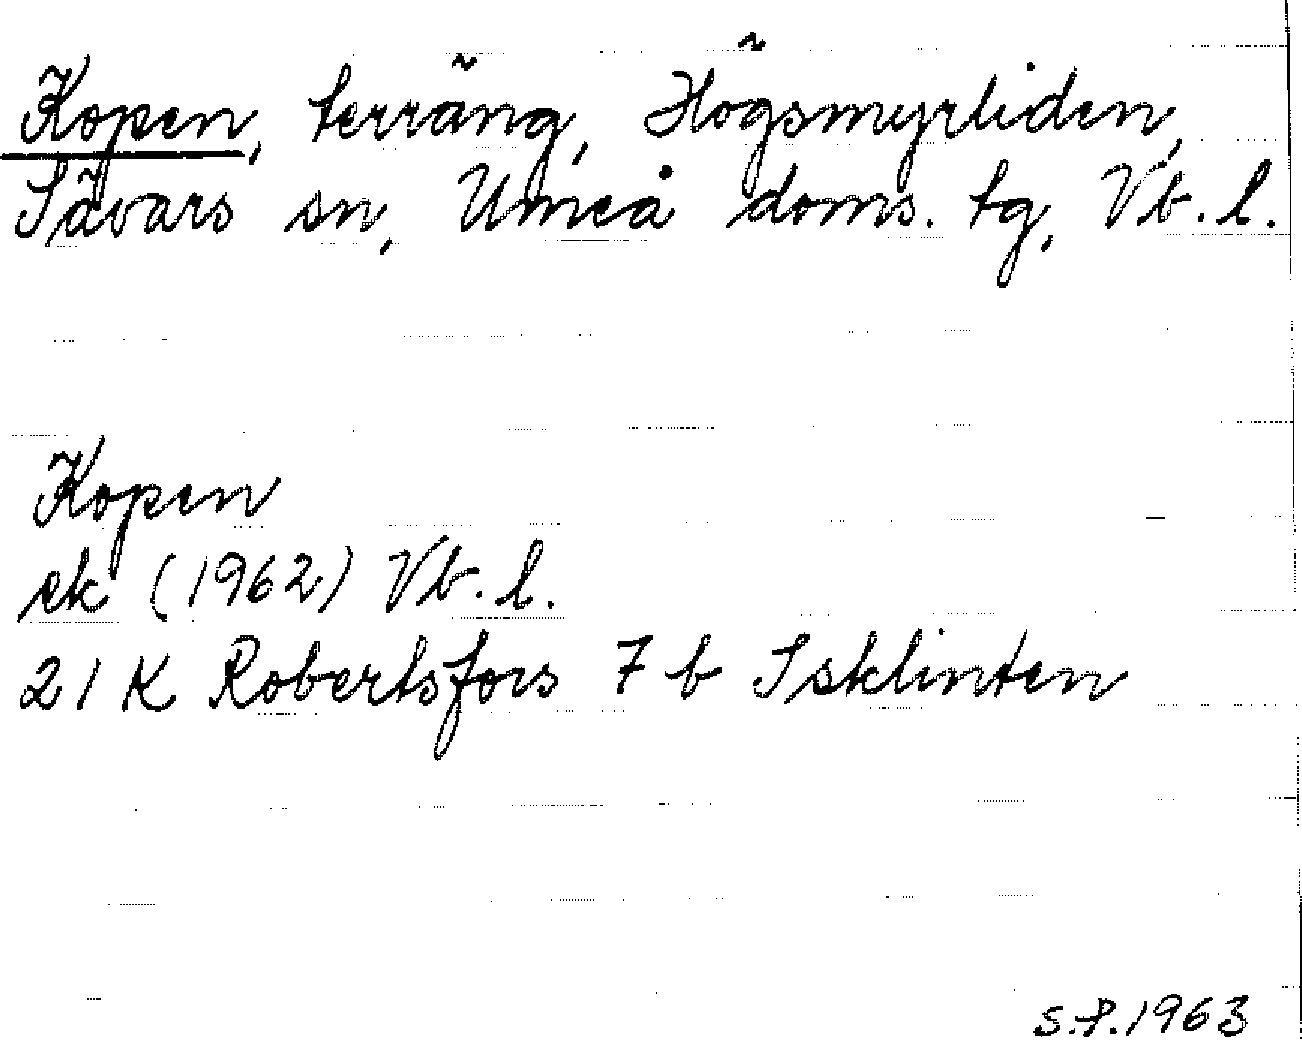 Kopen, terräng, Högsmyrliden,
Sävars sn, Umeå doms. tg, Vb. l.
Kopen
ek (1962) Vb. l.
21 K Robertsfors 7 b Isklinten
S.P. 1963